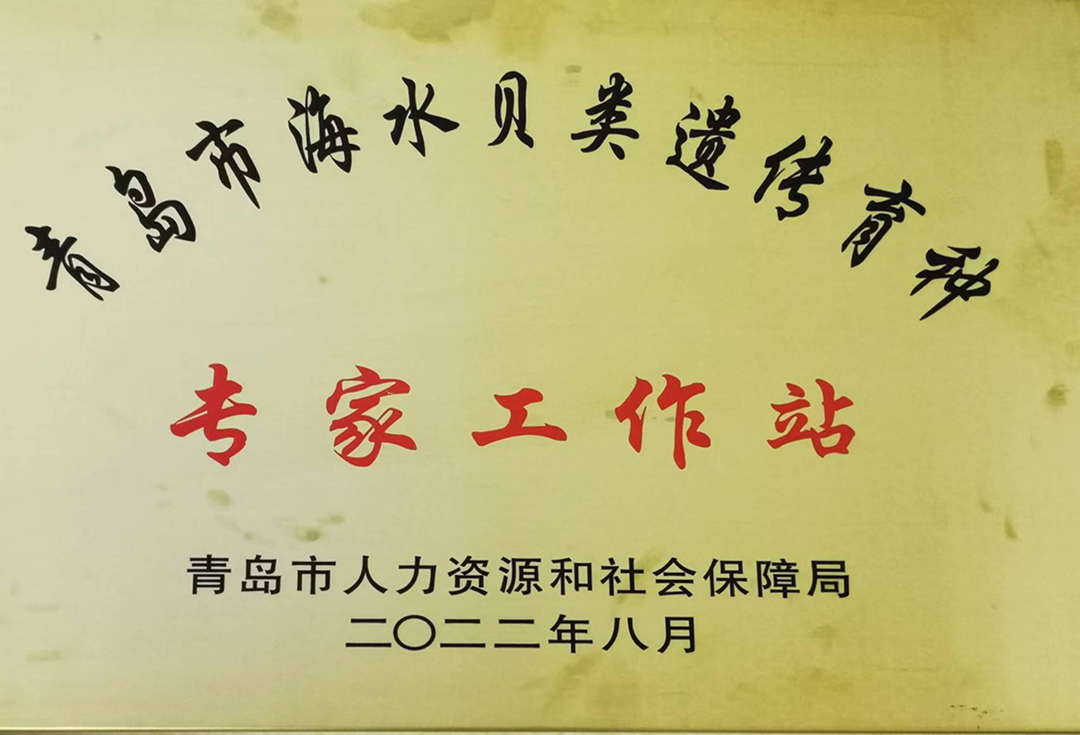 青岛市海水贝类遗传育种
专家工作站
青岛市人力资源和社会保障局
二〇二二年八月